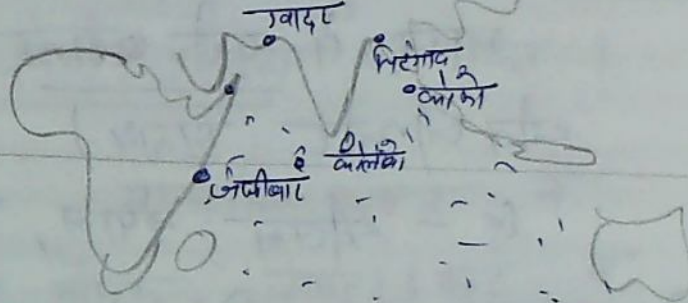 ग्वादर
चिटगांव
कोको
कोलंबो
जंजीबार